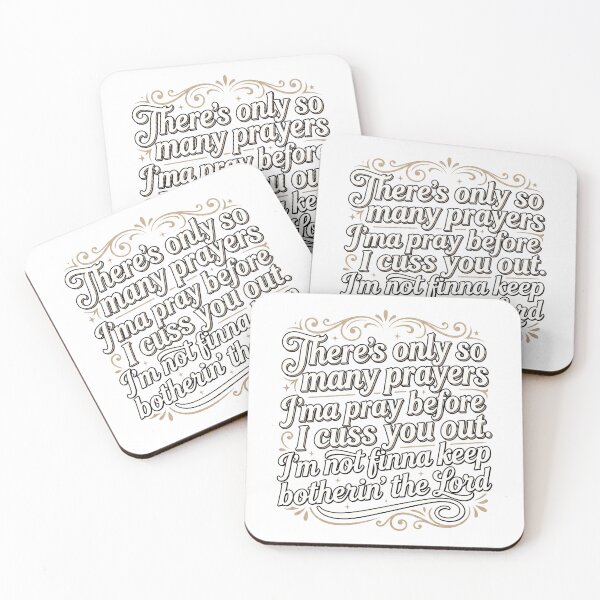 There's only so
many prayers
I'ma pray before
you out.
keep
There's only so
many prayers
I'ma pray before
I cuss you out.
I'm not finna keep
There's only so
many prayers
I'ma pray before
I cuss you out.
I'm not finna
botherin' the
There's only so
many prayers
I'ma pray before
I cuss you out.
I'm not finna keep
botherin' the Lord